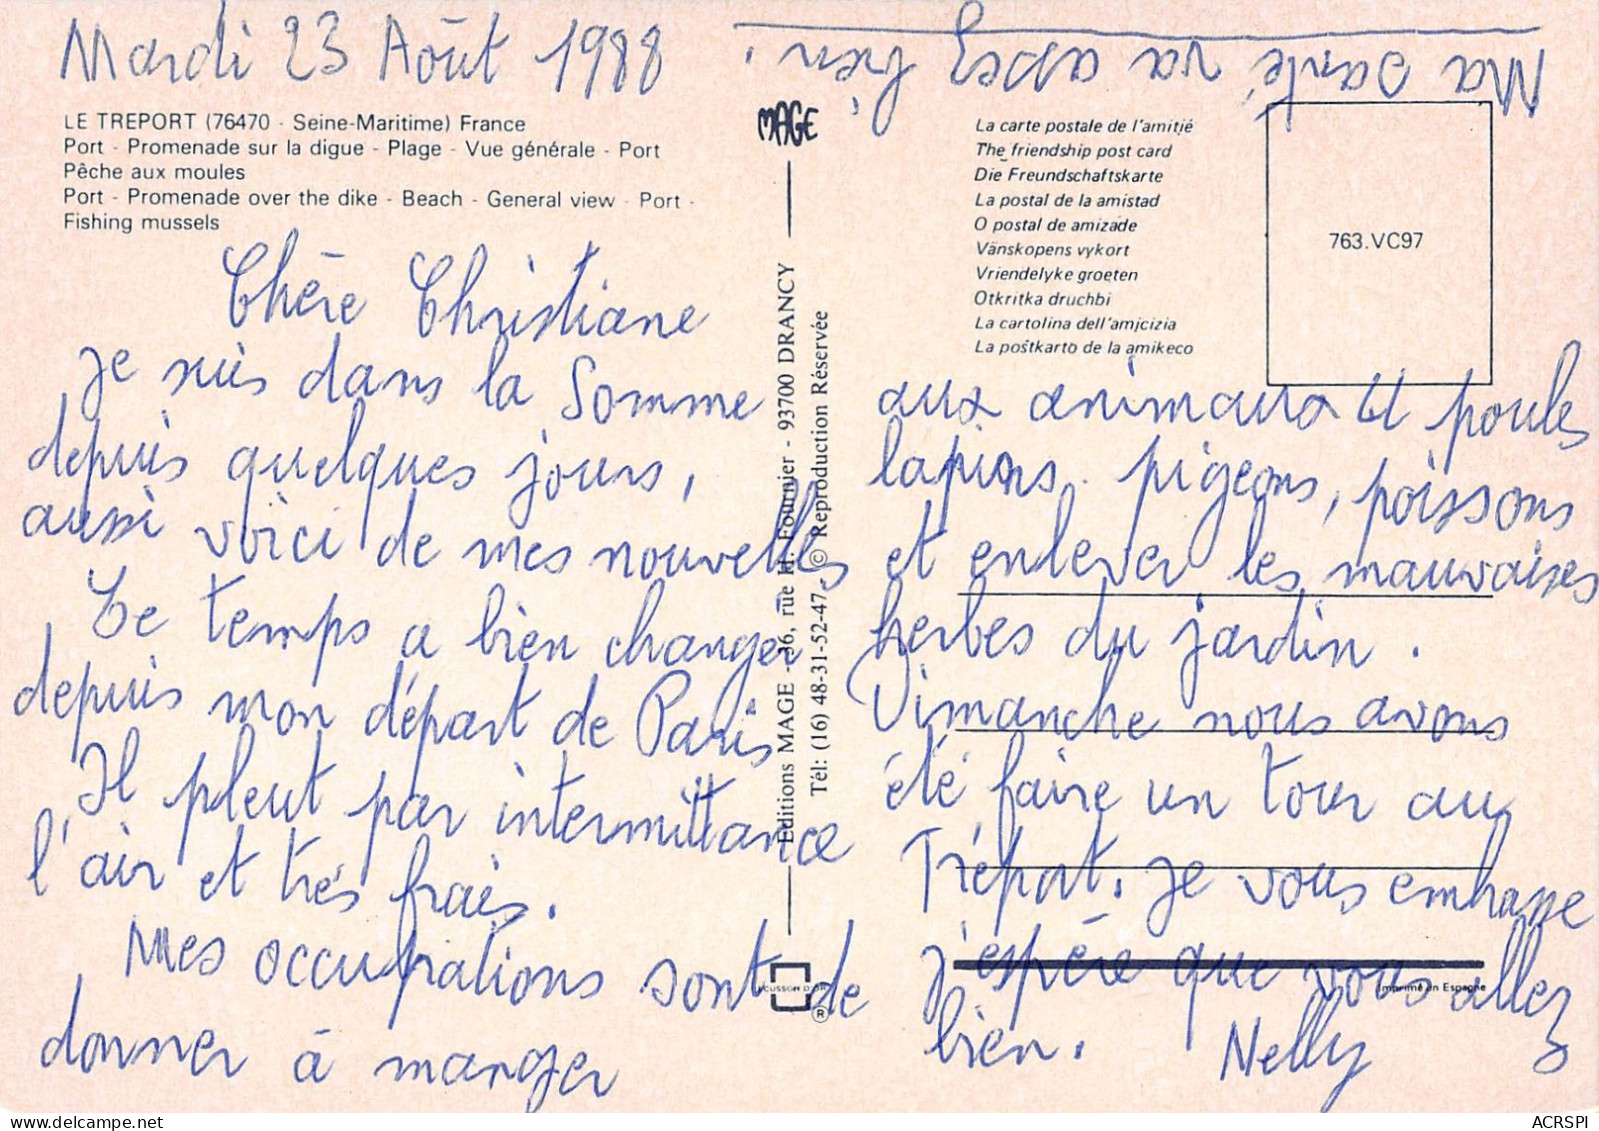 Mardi 23 Août 1988
LE TREPORT (76470 - Seine-Maritime) France
Port - Promenade sur la digue - Plage - Vue générale - Port
Pêche aux moules
Port - Promenade over the dike - Beach - General view - Port -
Fishing mussels
Chère Christiane
je suis dans la Somme
depuis quelques jours,
aussi voici de mes nouvelles
Le temps a bien changer
depuis mon départ de Paris
Il pleut par intermittance
l'air et très frais.
Mes occupations sont de
donner à manger
MAGE
Editions MAGE - 36, rue H. Fournier - 93700 DRANCY
Tél: (16) 48-31-52-47 - © Reproduction Réservée
ECUSSON D'OR
®
La carte postale de l'amitié
The friendship post card
Die Freundschaftskarte
La postal de la amistad
O postal de amizade
Vänskopens vykort
Vriendelyke groeten
Otkritka druchbi
La cartolina dell'amicizia
La poŝtkarto de la amikeco
763.VC97
aux animaux poules
lapins. pigeons, poissons
et enlever les mauvaises
herbes du jardin.
Dimanche nous avons
été faire un tour au
Tréport. Je vous embrasse
j'espère que vous allez
bien. Nelly
Imprimé en Espagne
Ma santé va assez bien.
ACRSPI